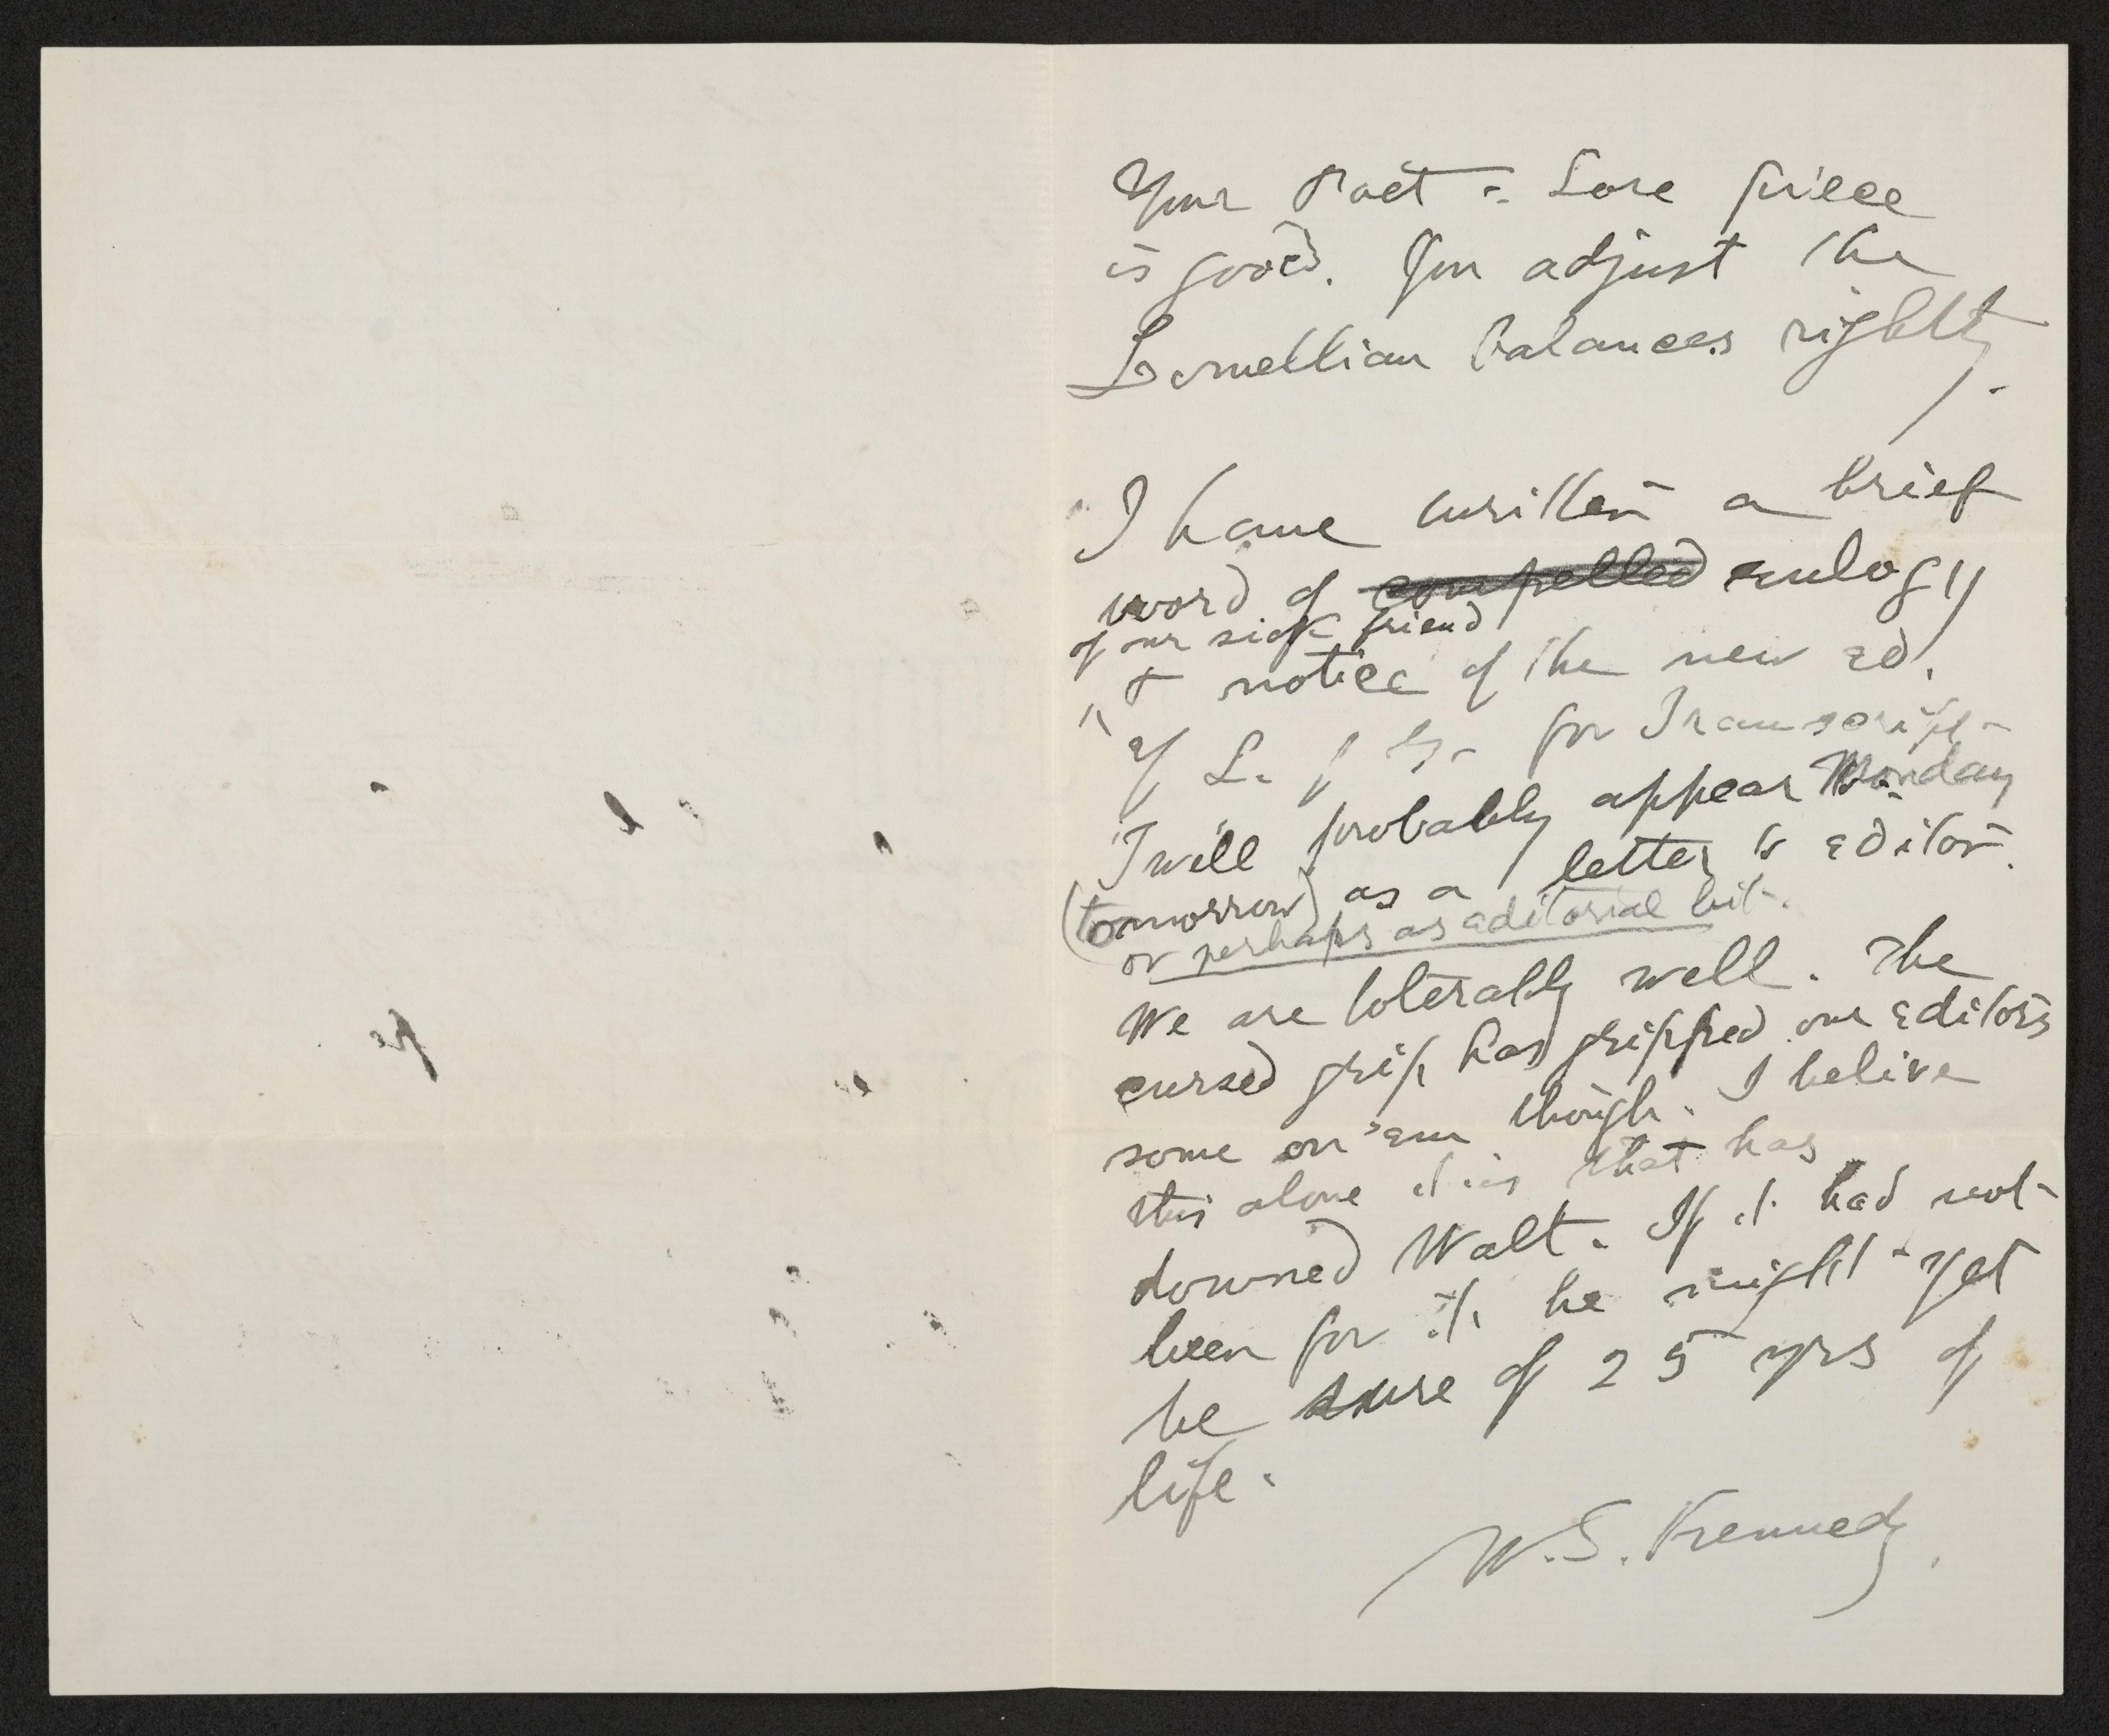 Your Poet-Lore piece
is good. You adjust the
Lowellian balances rightly.
I have written a brief
word of compelled eulogy
of our sick friend
& notice of the new ed.
of L. of G. for Transcript.
Twill probably appear Monday
(tomorrow) as a letter to editor.
or perhaps as editorial bit.
We are tolerably well. The
cursed grip has gripped our editors
some on 'em though. I belive
this alone it is that has
downed Walt. If it had not
been for it he might yet
be sure of 25 yrs of
life.
W. S. Kennedy.